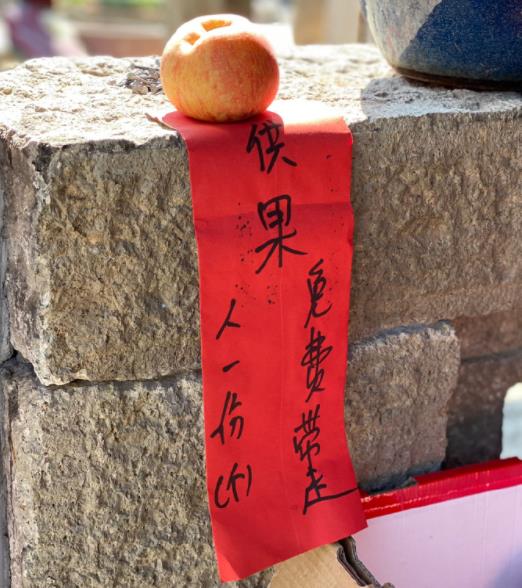 供果
免费带走
人一份(个)